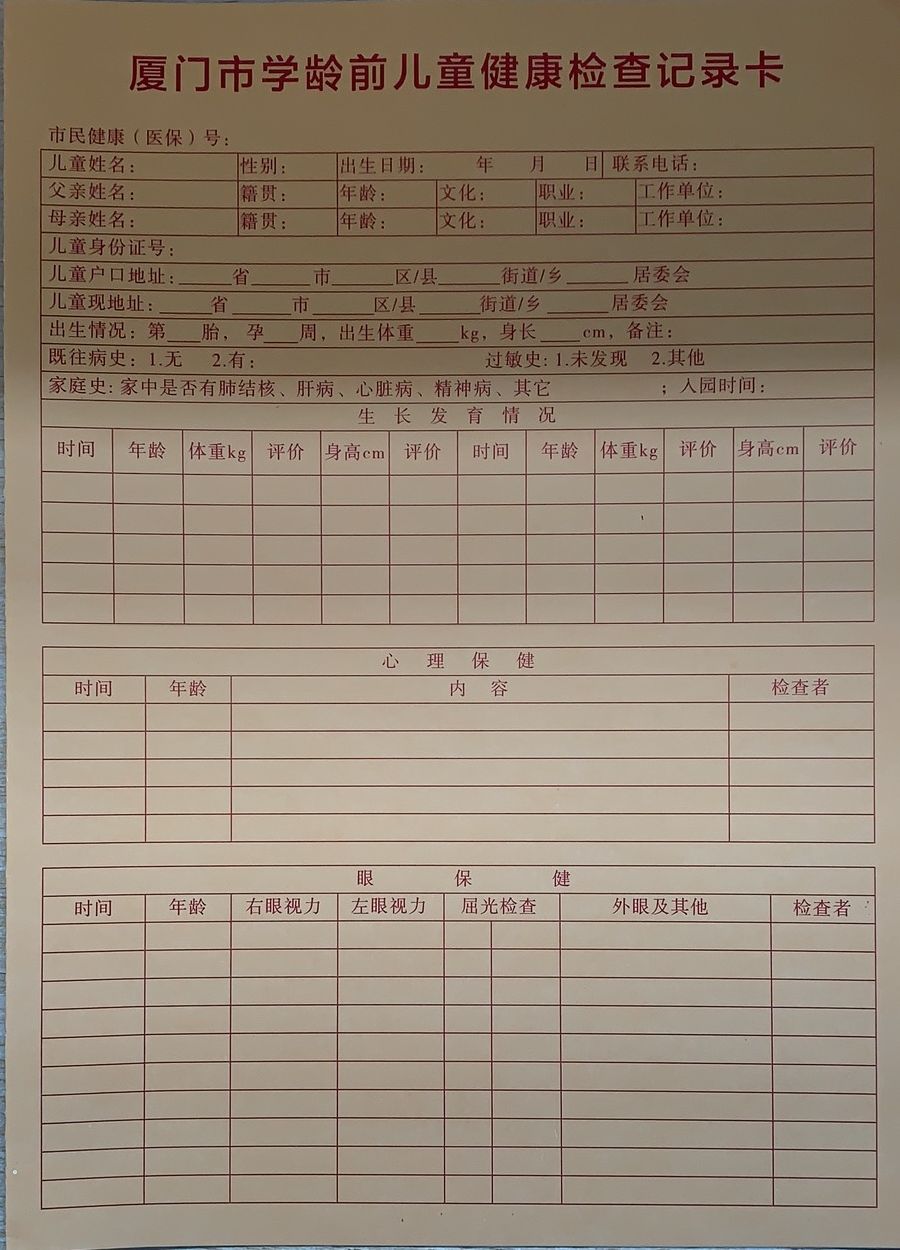 厦门市学龄前儿童健康检查记录卡
市民健康（医保）号：
儿童姓名： 性别： 出生日期： 年 月 日 联系电话：
父亲姓名： 籍贯： 年龄： 文化： 职业： 工作单位：
母亲姓名： 籍贯： 年龄： 文化： 职业： 工作单位：
儿童身份证号：
儿童户口地址：_____省_____市_____区/县_____街道/乡_____居委会
儿童现地址：_____省_____市_____区/县_____街道/乡_____居委会
出生情况：第___胎，孕___周，出生体重____kg，身长____cm，备注：
既往病史：1.无 2.有： 过敏史：1.未发现 2.其他
家庭史：家中是否有肺结核、肝病、心脏病、精神病、其它 ；入园时间：
生长发育情况
时间 年龄 体重kg 评价 身高cm 评价 时间 年龄 体重kg 评价 身高cm 评价
心理保健
时间 年龄 内容 检查者
眼保健
时间 年龄 右眼视力 左眼视力 屈光检查 外眼及其他 检查者